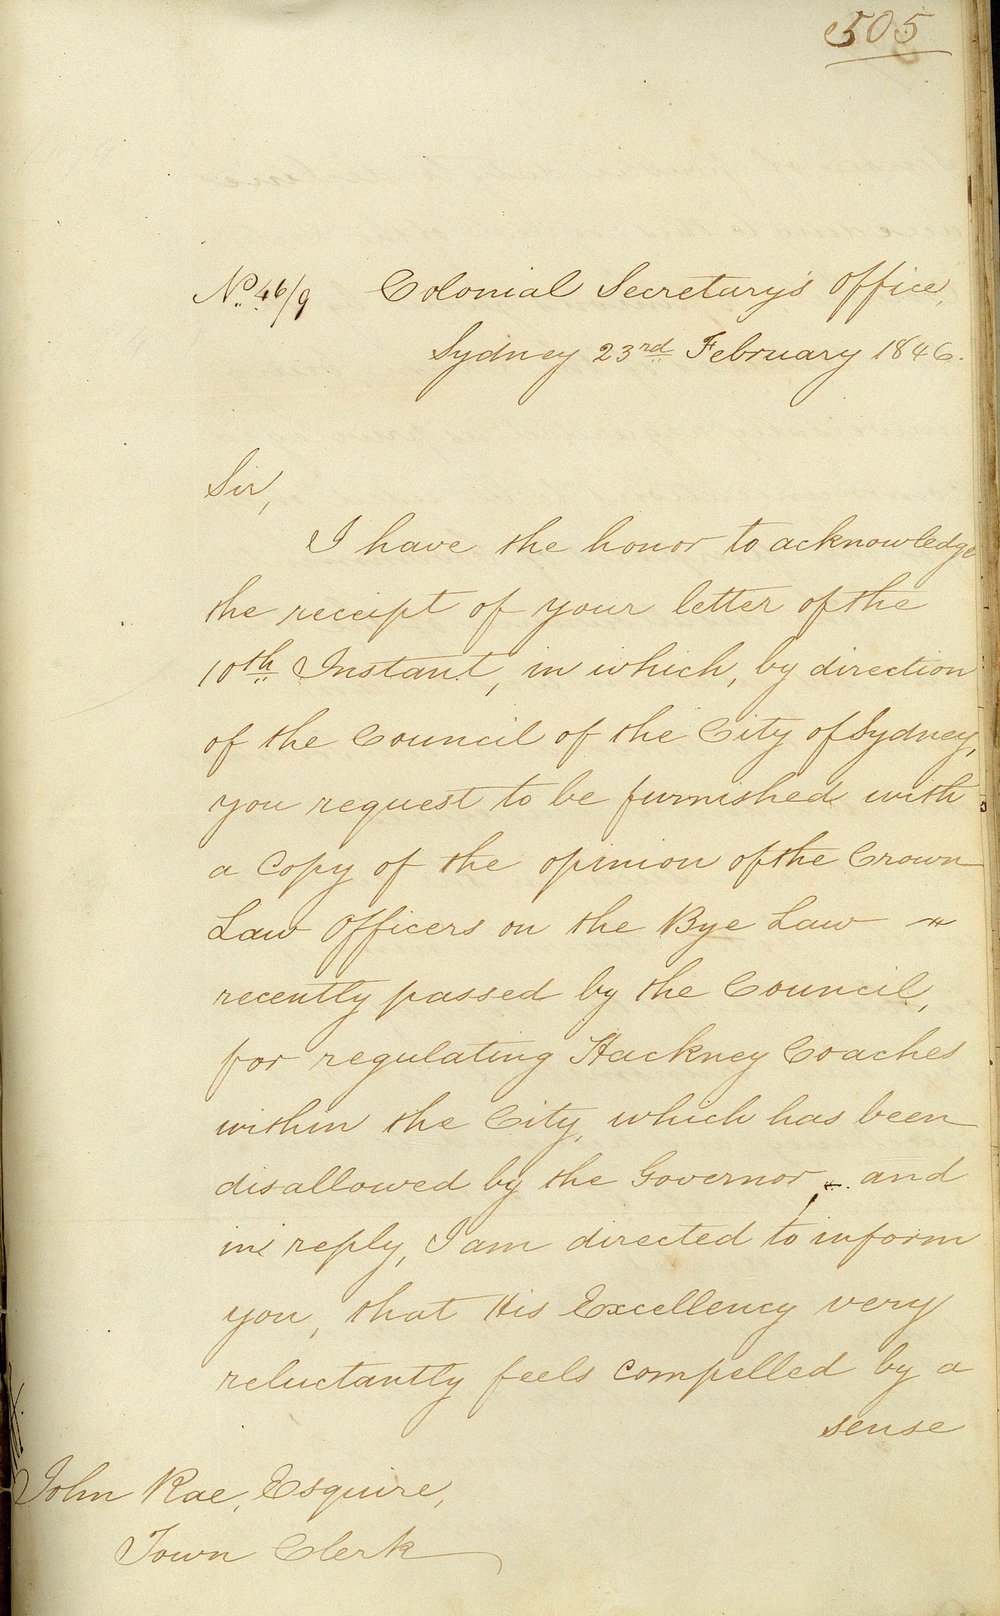 505
No. 46/9 Colonial Secretary's Office,
Sydney 23rd February 1846.
Sir,
I have the honor to acknowledge
the receipt of your letter of the
10th Instant, in which, by direction
of the Council of the City of Sydney,
you request to be furnished with
a Copy of the opinion of the Crown
Law Officers on the Bye Law
recently passed by the Council,
for regulating Hackney Coaches
within the City, which has been
disallowed by the Governor, and
in reply, I am directed to inform
you, that His Excellency very
reluctantly feels compelled by a
sense
John Rae, Esquire,
Town Clerk